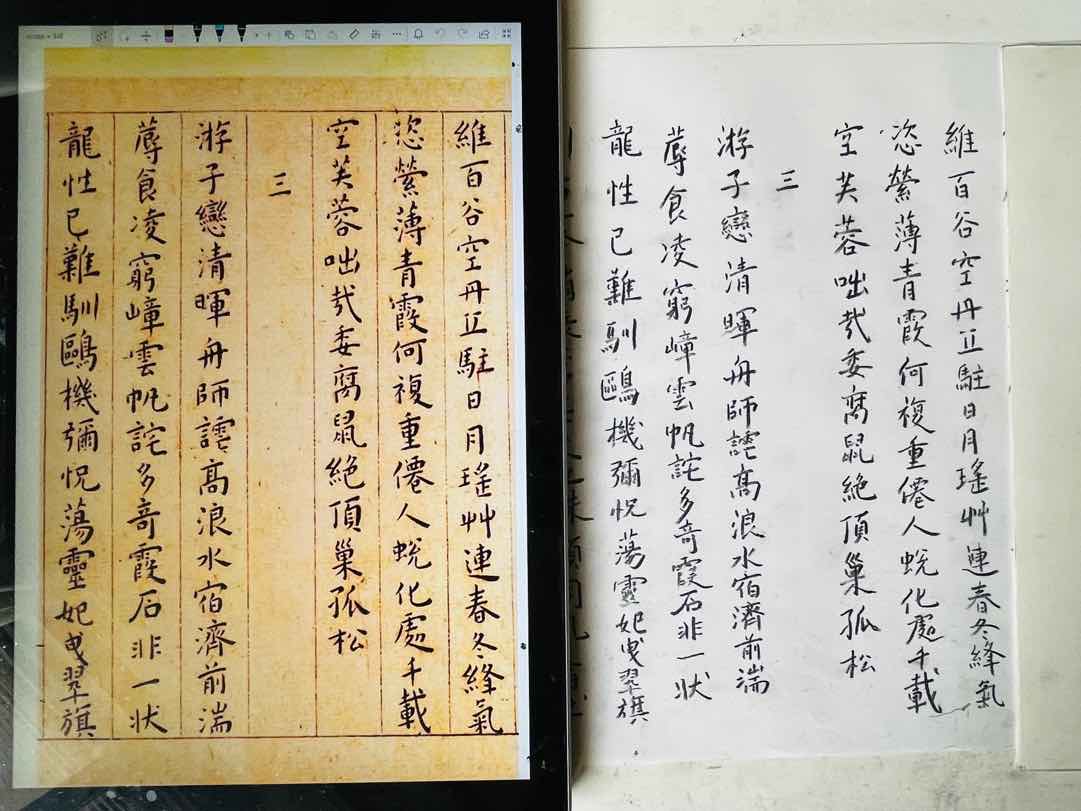 維百谷空丹丘駐日月瑤艸連春冬絳氣
恣縈薄青霞何複重僊人蛻化處千載
空芙蓉咄哉委腐鼠絕頂巢孤松
三
游子戀清暉舟師謔高浪水宿濟前湍
蓐食凌窮嶂雲帆詫多奇霞石非一狀
龍性已難馴鷗機彌怳蕩靈妃曳翠旗
維百谷空丹丘駐日月瑤艸連春冬絳氣
恣縈薄青霞何複重僊人蛻化處千載
空芙蓉咄哉委腐鼠絕頂巢孤松
三
游子戀清暉舟師謔高浪水宿濟前湍
蓐食凌窮嶂雲帆詫多奇霞石非一狀
龍性已難馴鷗機彌怳蕩靈妃曳翠旗